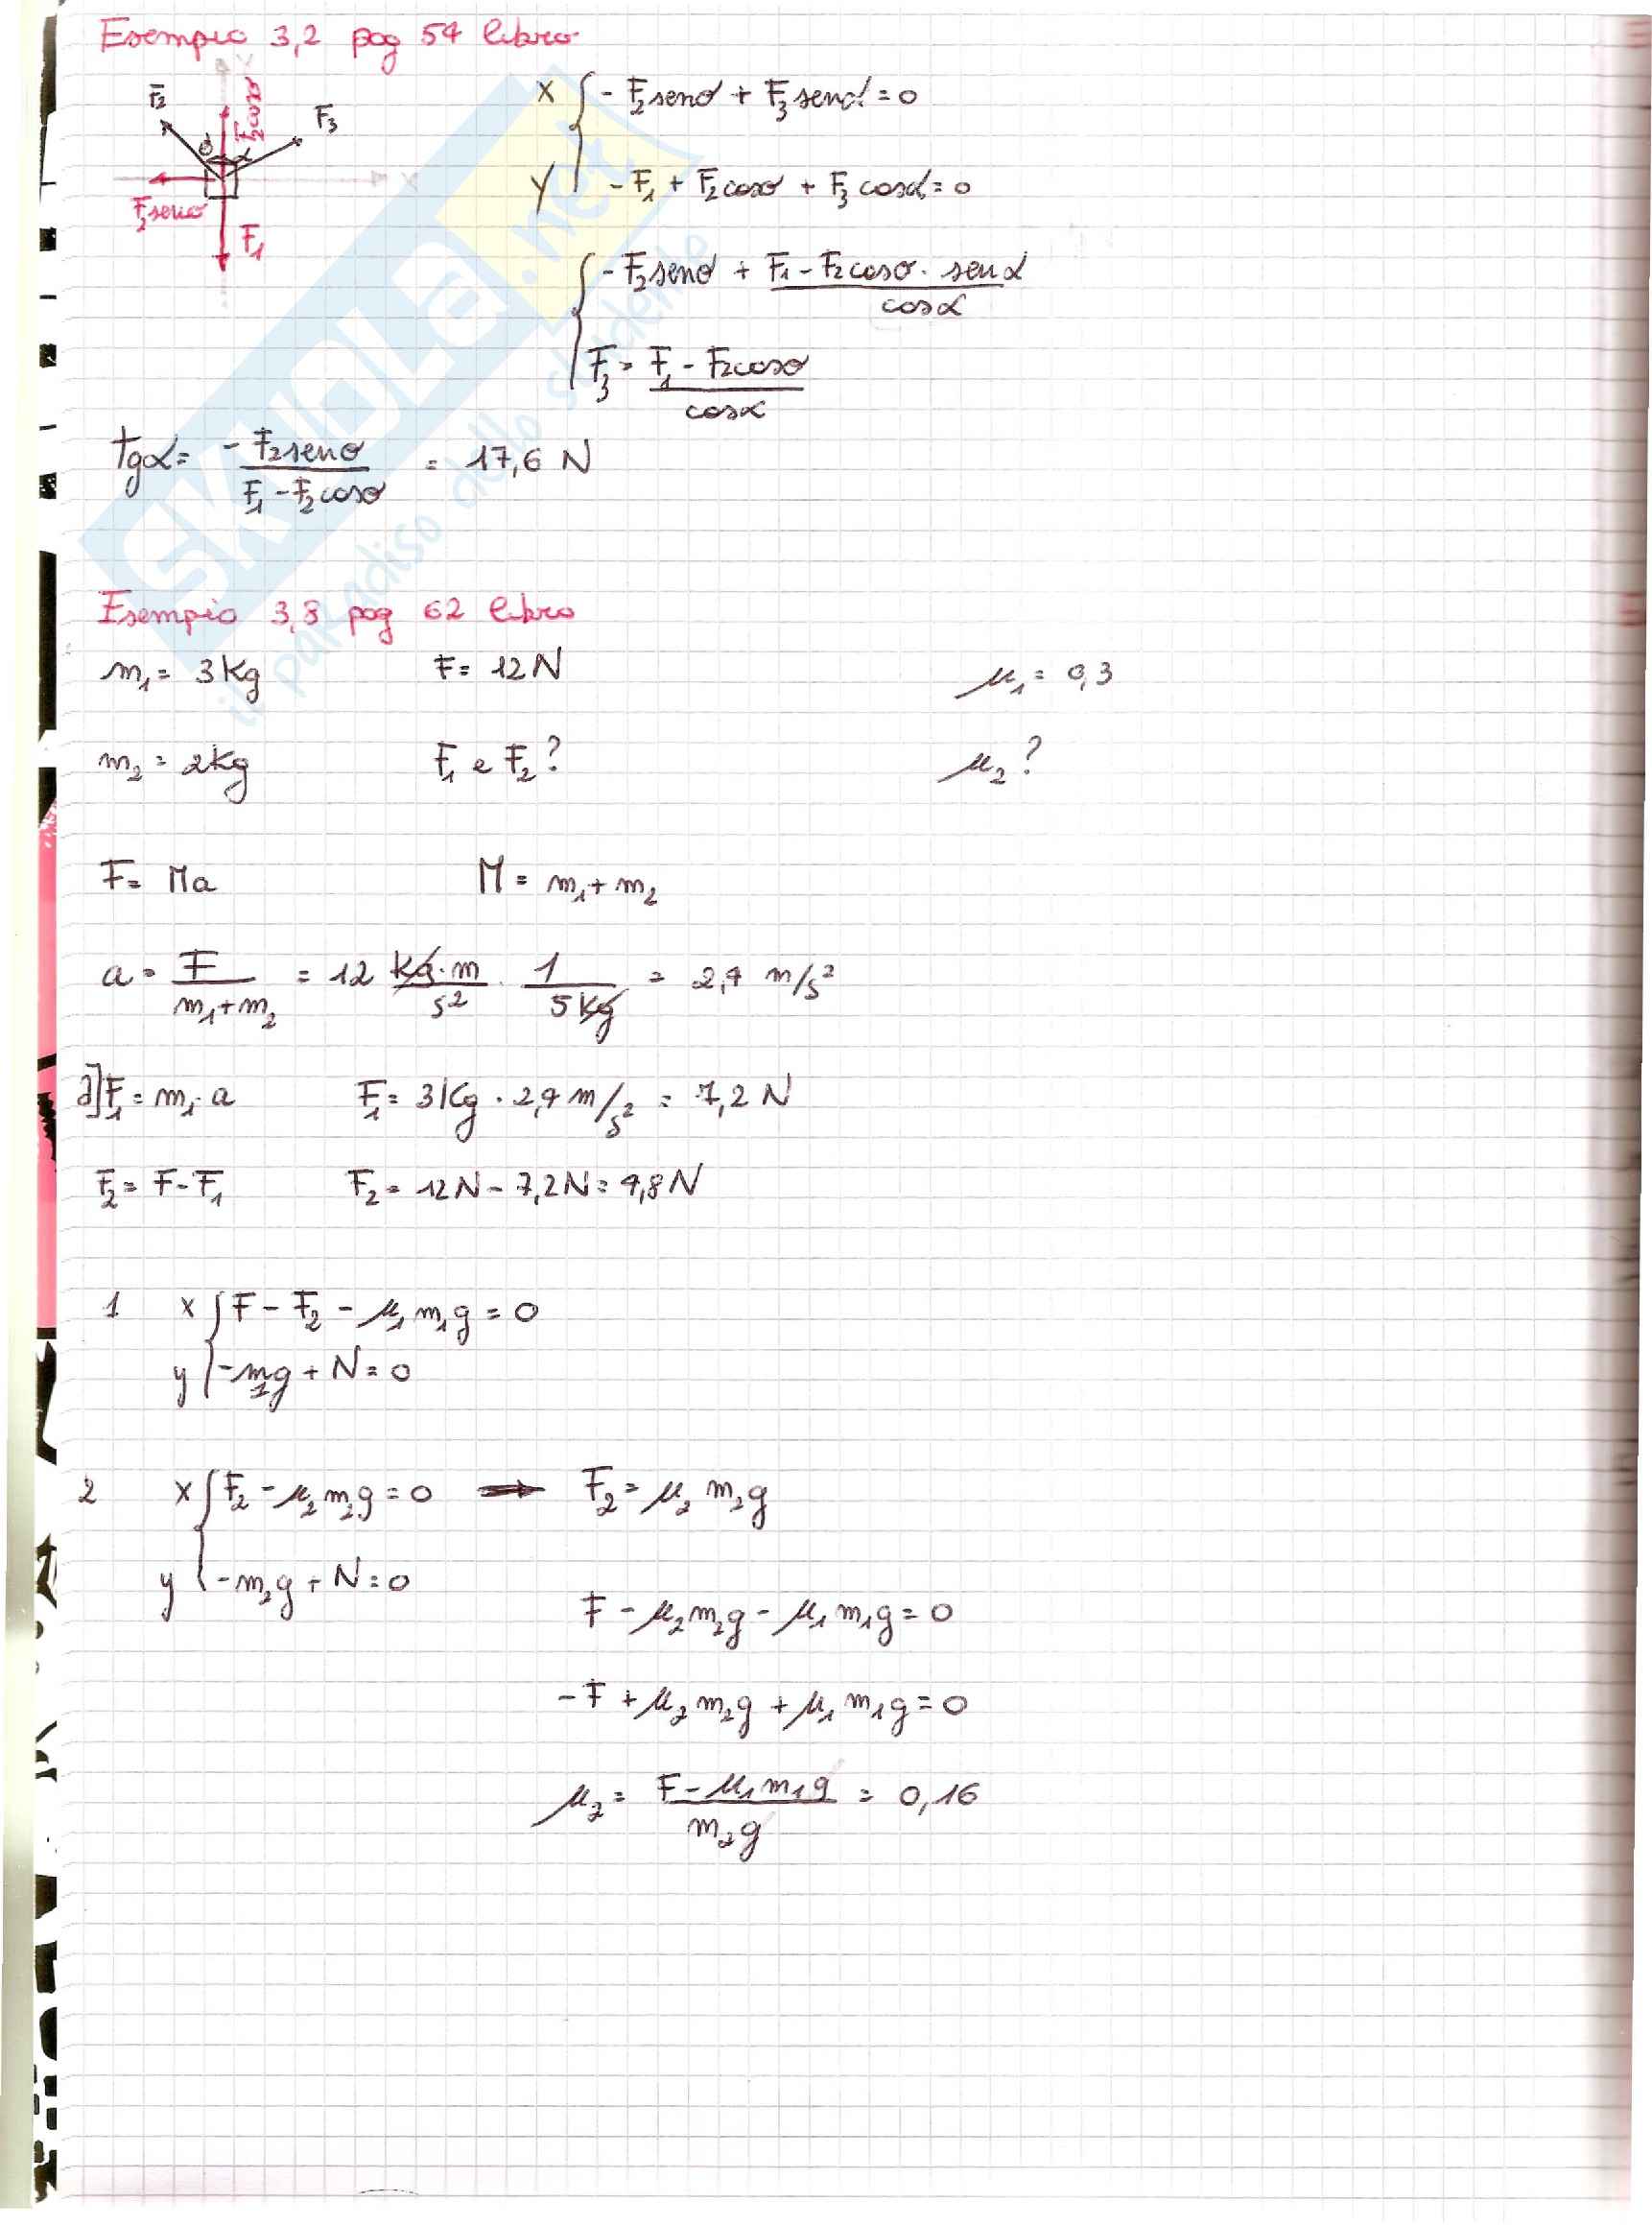 Esempio 3,2 pag 54 libro
F₂ F₂cosσ F₃
σ α
x
F₂senσ
F₁
x { - F₂senσ + F₃senα = 0
y - F₁ + F₂cosσ + F₃cosα = 0
{ - F₂senσ + F₁ - F₂cosσ · senα / cosα
F₃ = F₁ - F₂cosσ / cosα
tgα = - F₂senσ / F₁ - F₂cosσ = 17,6 N
SKUOLA.net
il paradiso dello studente
Esempio 3,8 pag 62 libro
m₁ = 3Kg F = 12N μ₁ = 0,3
m₂ = 2Kg F₁ e F₂? μ₂?
F = Ma M = m₁ + m₂
a = F / m₁ + m₂ = 12 Kg·m / s² · 1 / 5Kg = 2,4 m/s²
a] F₁ = m₁·a F₁ = 3Kg · 2,4 m/s² = 7,2 N
F₂ = F - F₁ F₂ = 12N - 7,2N = 4,8N
1 x { F - F₂ - μ₁m₁g = 0
y - m₁g + N = 0
2 x { F₂ - μ₂m₂g = 0 → F₂ = μ₂m₂g
y - m₂g + N = 0
F - μ₂m₂g - μ₁m₁g = 0
- F + μ₂m₂g + μ₁m₁g = 0
μ₂ = F - μ₁m₁g / m₂g = 0,16